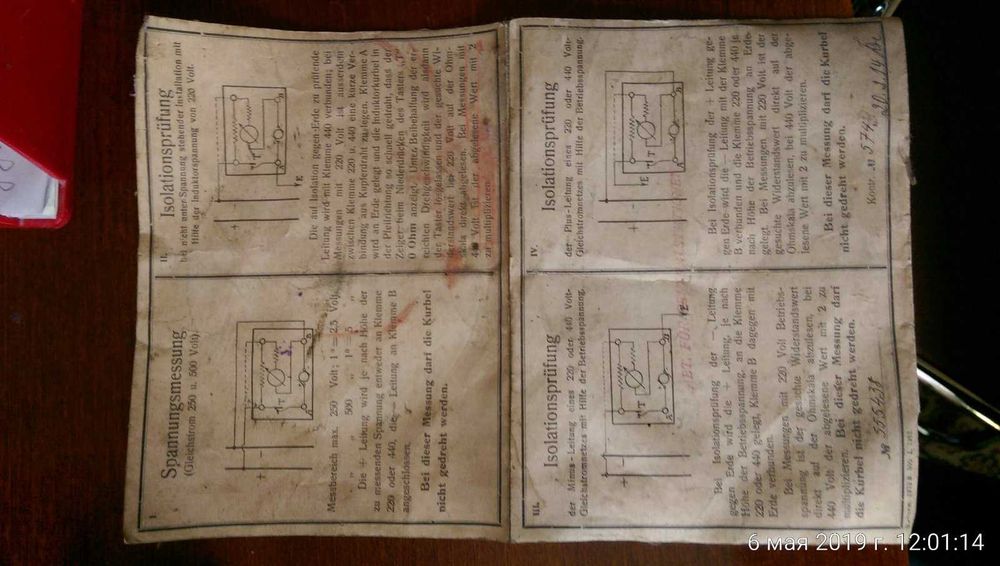 I.
Spannungsmessung
(Gleichstrom 250 u. 500 Volt).
+ -
T
A
B
Messbereich max. 250 Volt; 1° = 2,5 Volt
" " 500 " 1° = 5 "
Die + Leitung wird je nach Höhe der
zu messenden Spannung entweder an Klemme
220 oder 440, die - Leitung an Klemme B
angeschlossen.
Bei dieser Messung darf die Kurbel
nicht gedreht werden.
II.
Isolationsprüfung
bei nicht unter Spannung stehender Installation mit
Hilfe der Induktorspannung von 220 Volt.
+ -
T
E
A
B
Die auf Isolation gegen Erde zu prüfende
Leitung wird mit Klemme 440 verbunden; bei
Messungen mit 220 Volt ist ausserdem
zwischen Klemme 220 u. 440 eine kurze Ver-
bindung aus Kupferdraht zu legen. Klemme A
wird an Erde gelegt und die Induktorkurbel in
der Pfeilrichtung so schnell gedreht, dass der
Zeiger beim Niederdrücken des Tasters „T"
0 Ohm anzeigt. Unter Beibehaltung der er-
reichten Drehgeschwindigkeit wird alsdann
der Taster losgelassen und der gesuchte Wi-
derstandswert bei 220 Volt auf der Ohm-
skala direkt abgelesen. Bei Messungen mit
440 Volt ist der abgelesene Wert mit 2
zu multiplizieren.
III.
Isolationsprüfung
der Minus-Leitung eines 220 oder 440 Volt-
Gleichstromnetzes mit Hilfe der Betriebsspannung.
+ -
T
A
B
E
Bei Isolationsprüfung der - Leitung
gegen Erde wird die + Leitung, je nach
Höhe der Betriebsspannung, an die Klemme
220 oder 440 gelegt, Klemme B dagegen mit
Erde verbunden.
Bei Messungen mit 220 Volt Betriebs-
spannung ist der gesuchte Widerstandswert
direkt auf der Ohmskala abzulesen, bei
440 Volt der abgelesene Wert mit 2 zu
multiplizieren. Bei dieser Messung darf
die Kurbel nicht gedreht werden.
№ 555438
IV.
Isolationsprüfung
der Plus-Leitung eines 220 oder 440 Volt-
Gleichstromnetzes mit Hilfe der Betriebsspannung.
+ -
E
T
A
B
Bei Isolationsprüfung der + Leitung ge-
gen Erde wird die - Leitung mit der Klemme
B verbunden und die Klemme 220 oder 440 je
nach Höhe der Betriebsspannung an Erde
gelegt. Bei Messungen mit 220 Volt ist der
gesuchte Widerstandswert direkt auf der
Ohmskala abzulesen, bei 440 Volt der abge-
lesene Wert mit 2 zu multiplizieren.
Bei dieser Messung darf die Kurbel
nicht gedreht werden.
Kontr. №
6 мая 2019 г. 12:01:14